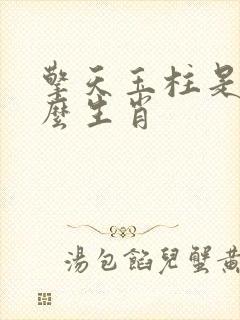 擎天玉柱是
麼生肖
湯包餡兒蟹黃